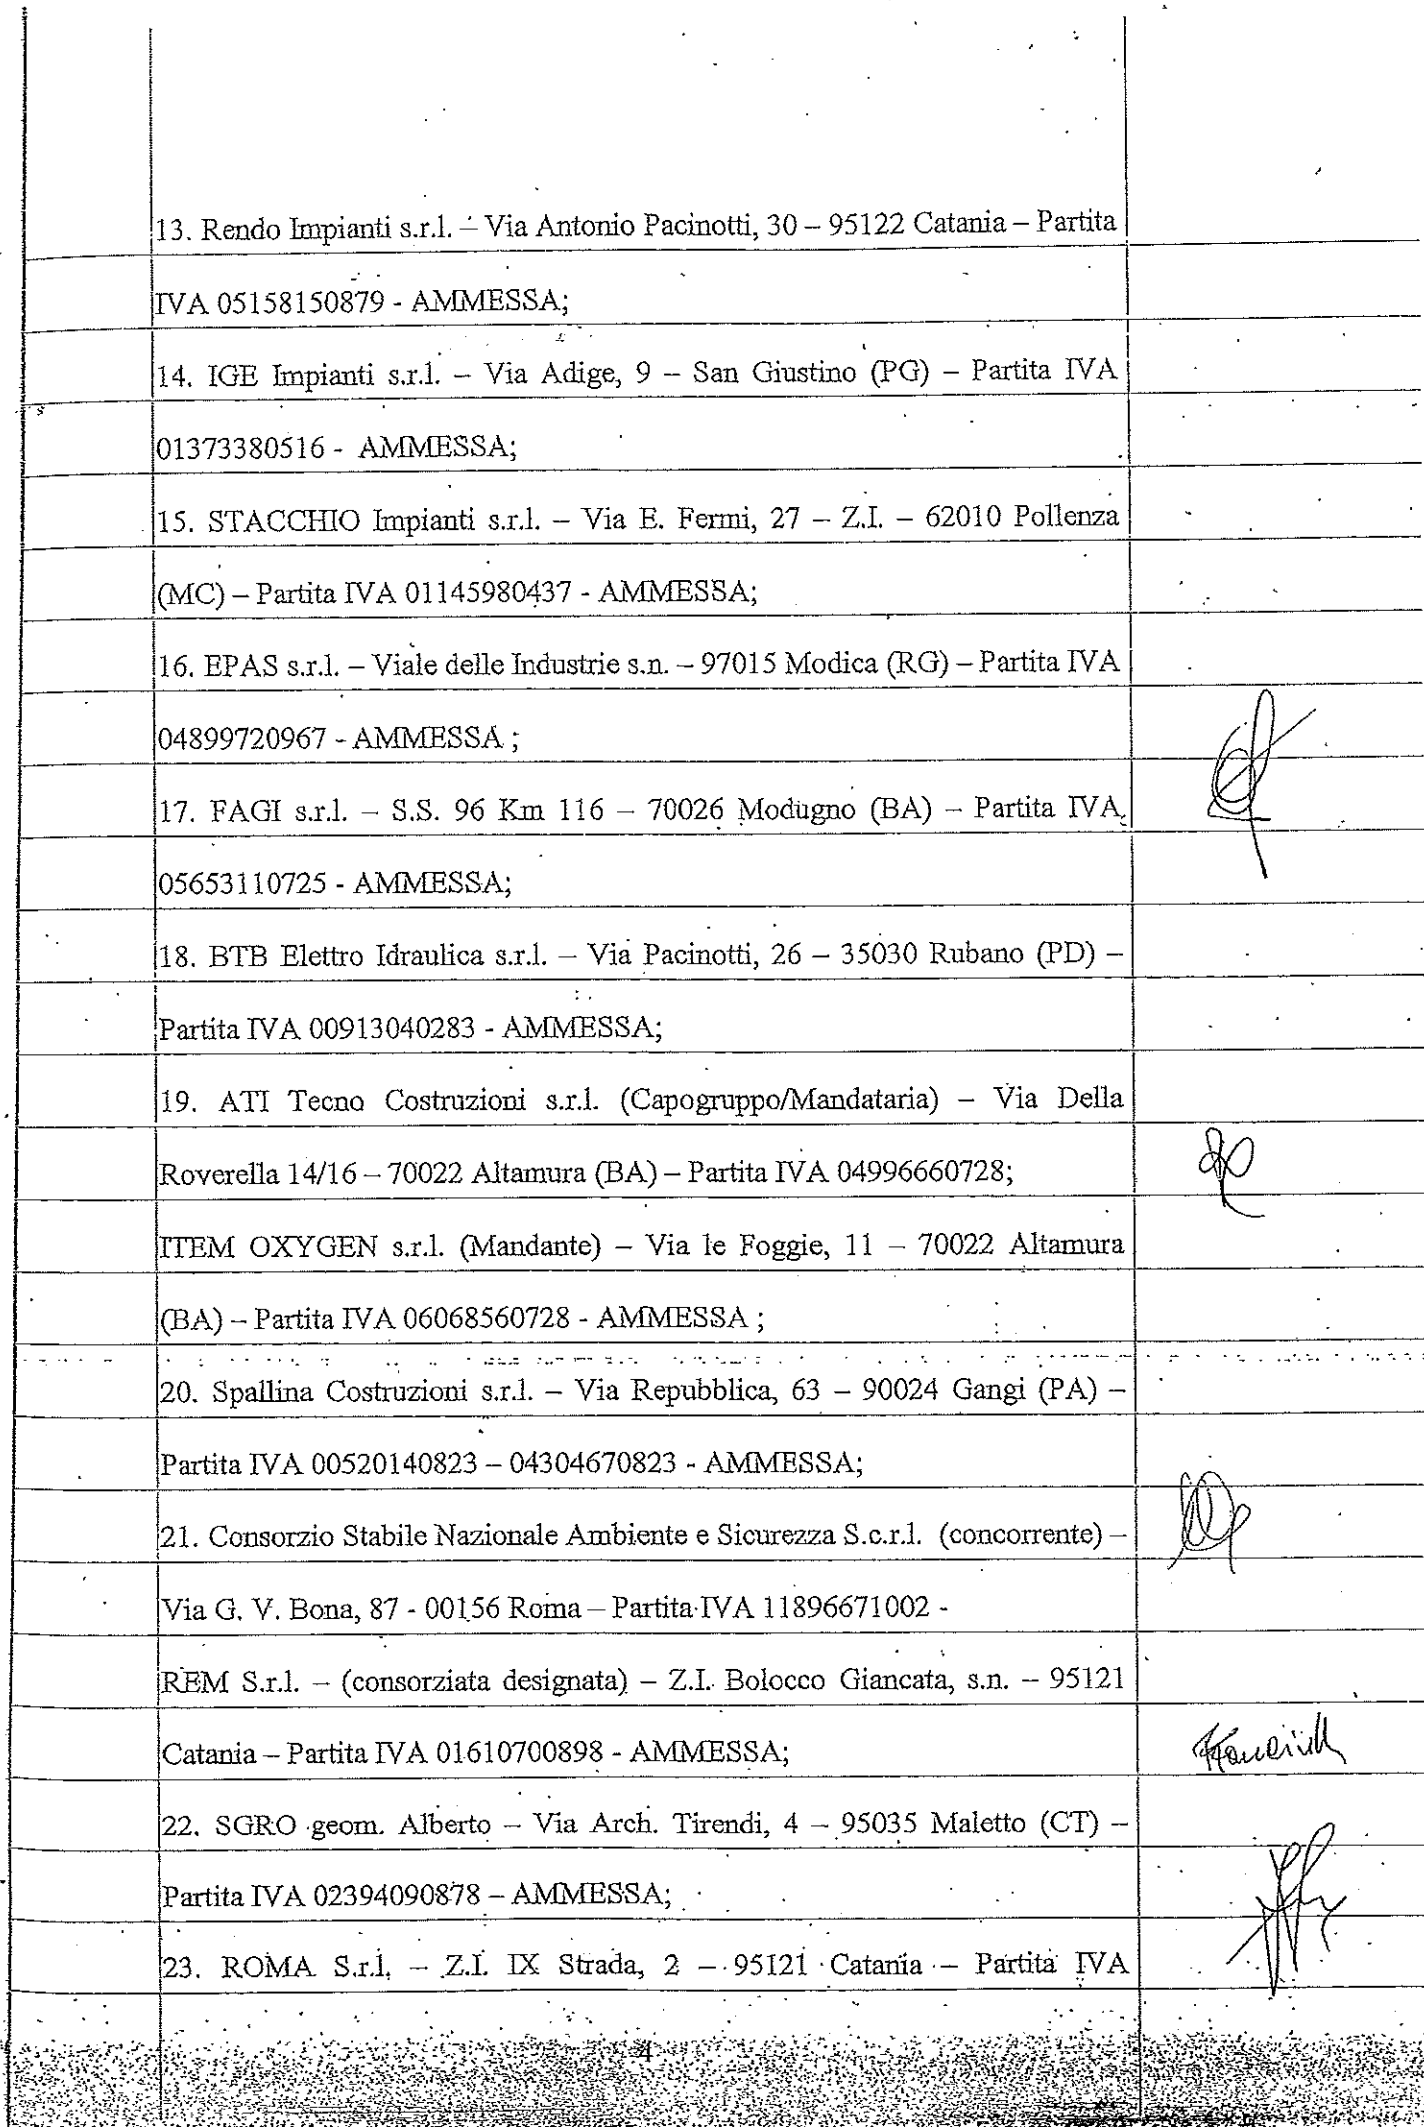 13. Rendo Impianti s.r.l. – Via Antonio Pacinotti, 30 – 95122 Catania – Partita
IVA 05158150879 - AMMESSA;
14. IGE Impianti s.r.l. – Via Adige, 9 – San Giustino (PG) – Partita IVA
01373380516 - AMMESSA;
15. STACCHIO Impianti s.r.l. – Via E. Fermi, 27 – Z.I. – 62010 Pollenza
(MC) – Partita IVA 01145980437 - AMMESSA;
16. EPAS s.r.l. – Viale delle Industrie s.n. – 97015 Modica (RG) – Partita IVA
04899720967 - AMMESSA ;
17. FAGI s.r.l. – S.S. 96 Km 116 – 70026 Modugno (BA) – Partita IVA
05653110725 - AMMESSA;
18. BTB Elettro Idraulica s.r.l. – Via Pacinotti, 26 – 35030 Rubano (PD) –
Partita IVA 00913040283 - AMMESSA;
19. ATI Tecno Costruzioni s.r.l. (Capogruppo/Mandataria) – Via Della
Roverella 14/16 – 70022 Altamura (BA) – Partita IVA 04996660728;
ITEM OXYGEN s.r.l. (Mandante) – Via le Foggie, 11 – 70022 Altamura
(BA) – Partita IVA 06068560728 - AMMESSA ;
20. Spallina Costruzioni s.r.l. – Via Repubblica, 63 – 90024 Gangi (PA) –
Partita IVA 00520140823 – 04304670823 - AMMESSA;
21. Consorzio Stabile Nazionale Ambiente e Sicurezza S.c.r.l. (concorrente) –
Via G. V. Bona, 87 - 00156 Roma – Partita IVA 11896671002 -
REM S.r.l. – (consorziata designata) – Z.I. Bolocco Giancata, s.n. – 95121
Catania – Partita IVA 01610700898 - AMMESSA;
22. SGRO geom. Alberto – Via Arch. Tirendi, 4 – 95035 Maletto (CT) –
Partita IVA 02394090878 – AMMESSA;
23. ROMA S.r.l. – Z.I. IX Strada, 2 – 95121 Catania – Partita IVA
4